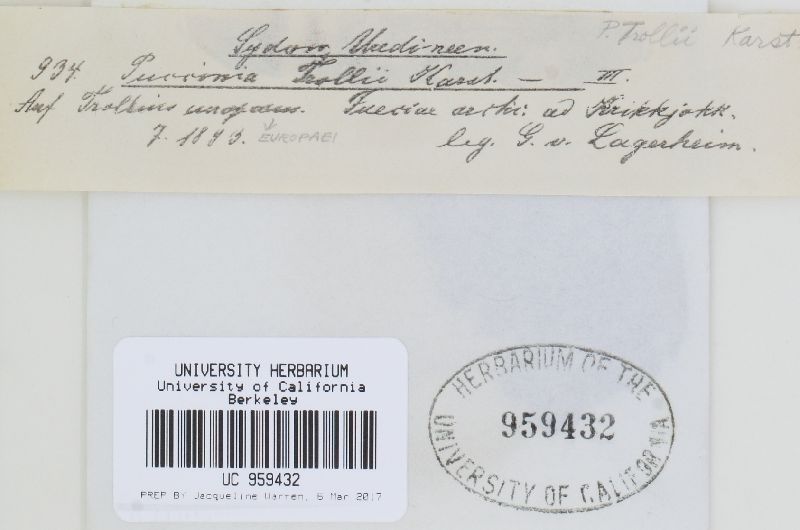 P. Trollii Karst
Sydow, Uredineen.
934. Puccinia Trollii Karst. — III.
Auf Trollius europaeus. Sueciae arct: ad Kvikkjokk.
7. 1893. EUROPAEI leg. G. v. Lagerheim.
UNIVERSITY HERBARIUM
University of California
Berkeley
UC 959432
PREP BY Jacqueline Warren, 6 Mar 2017
HERBARIUM OF THE
959432
UNIVERSITY OF CALIFORNIA